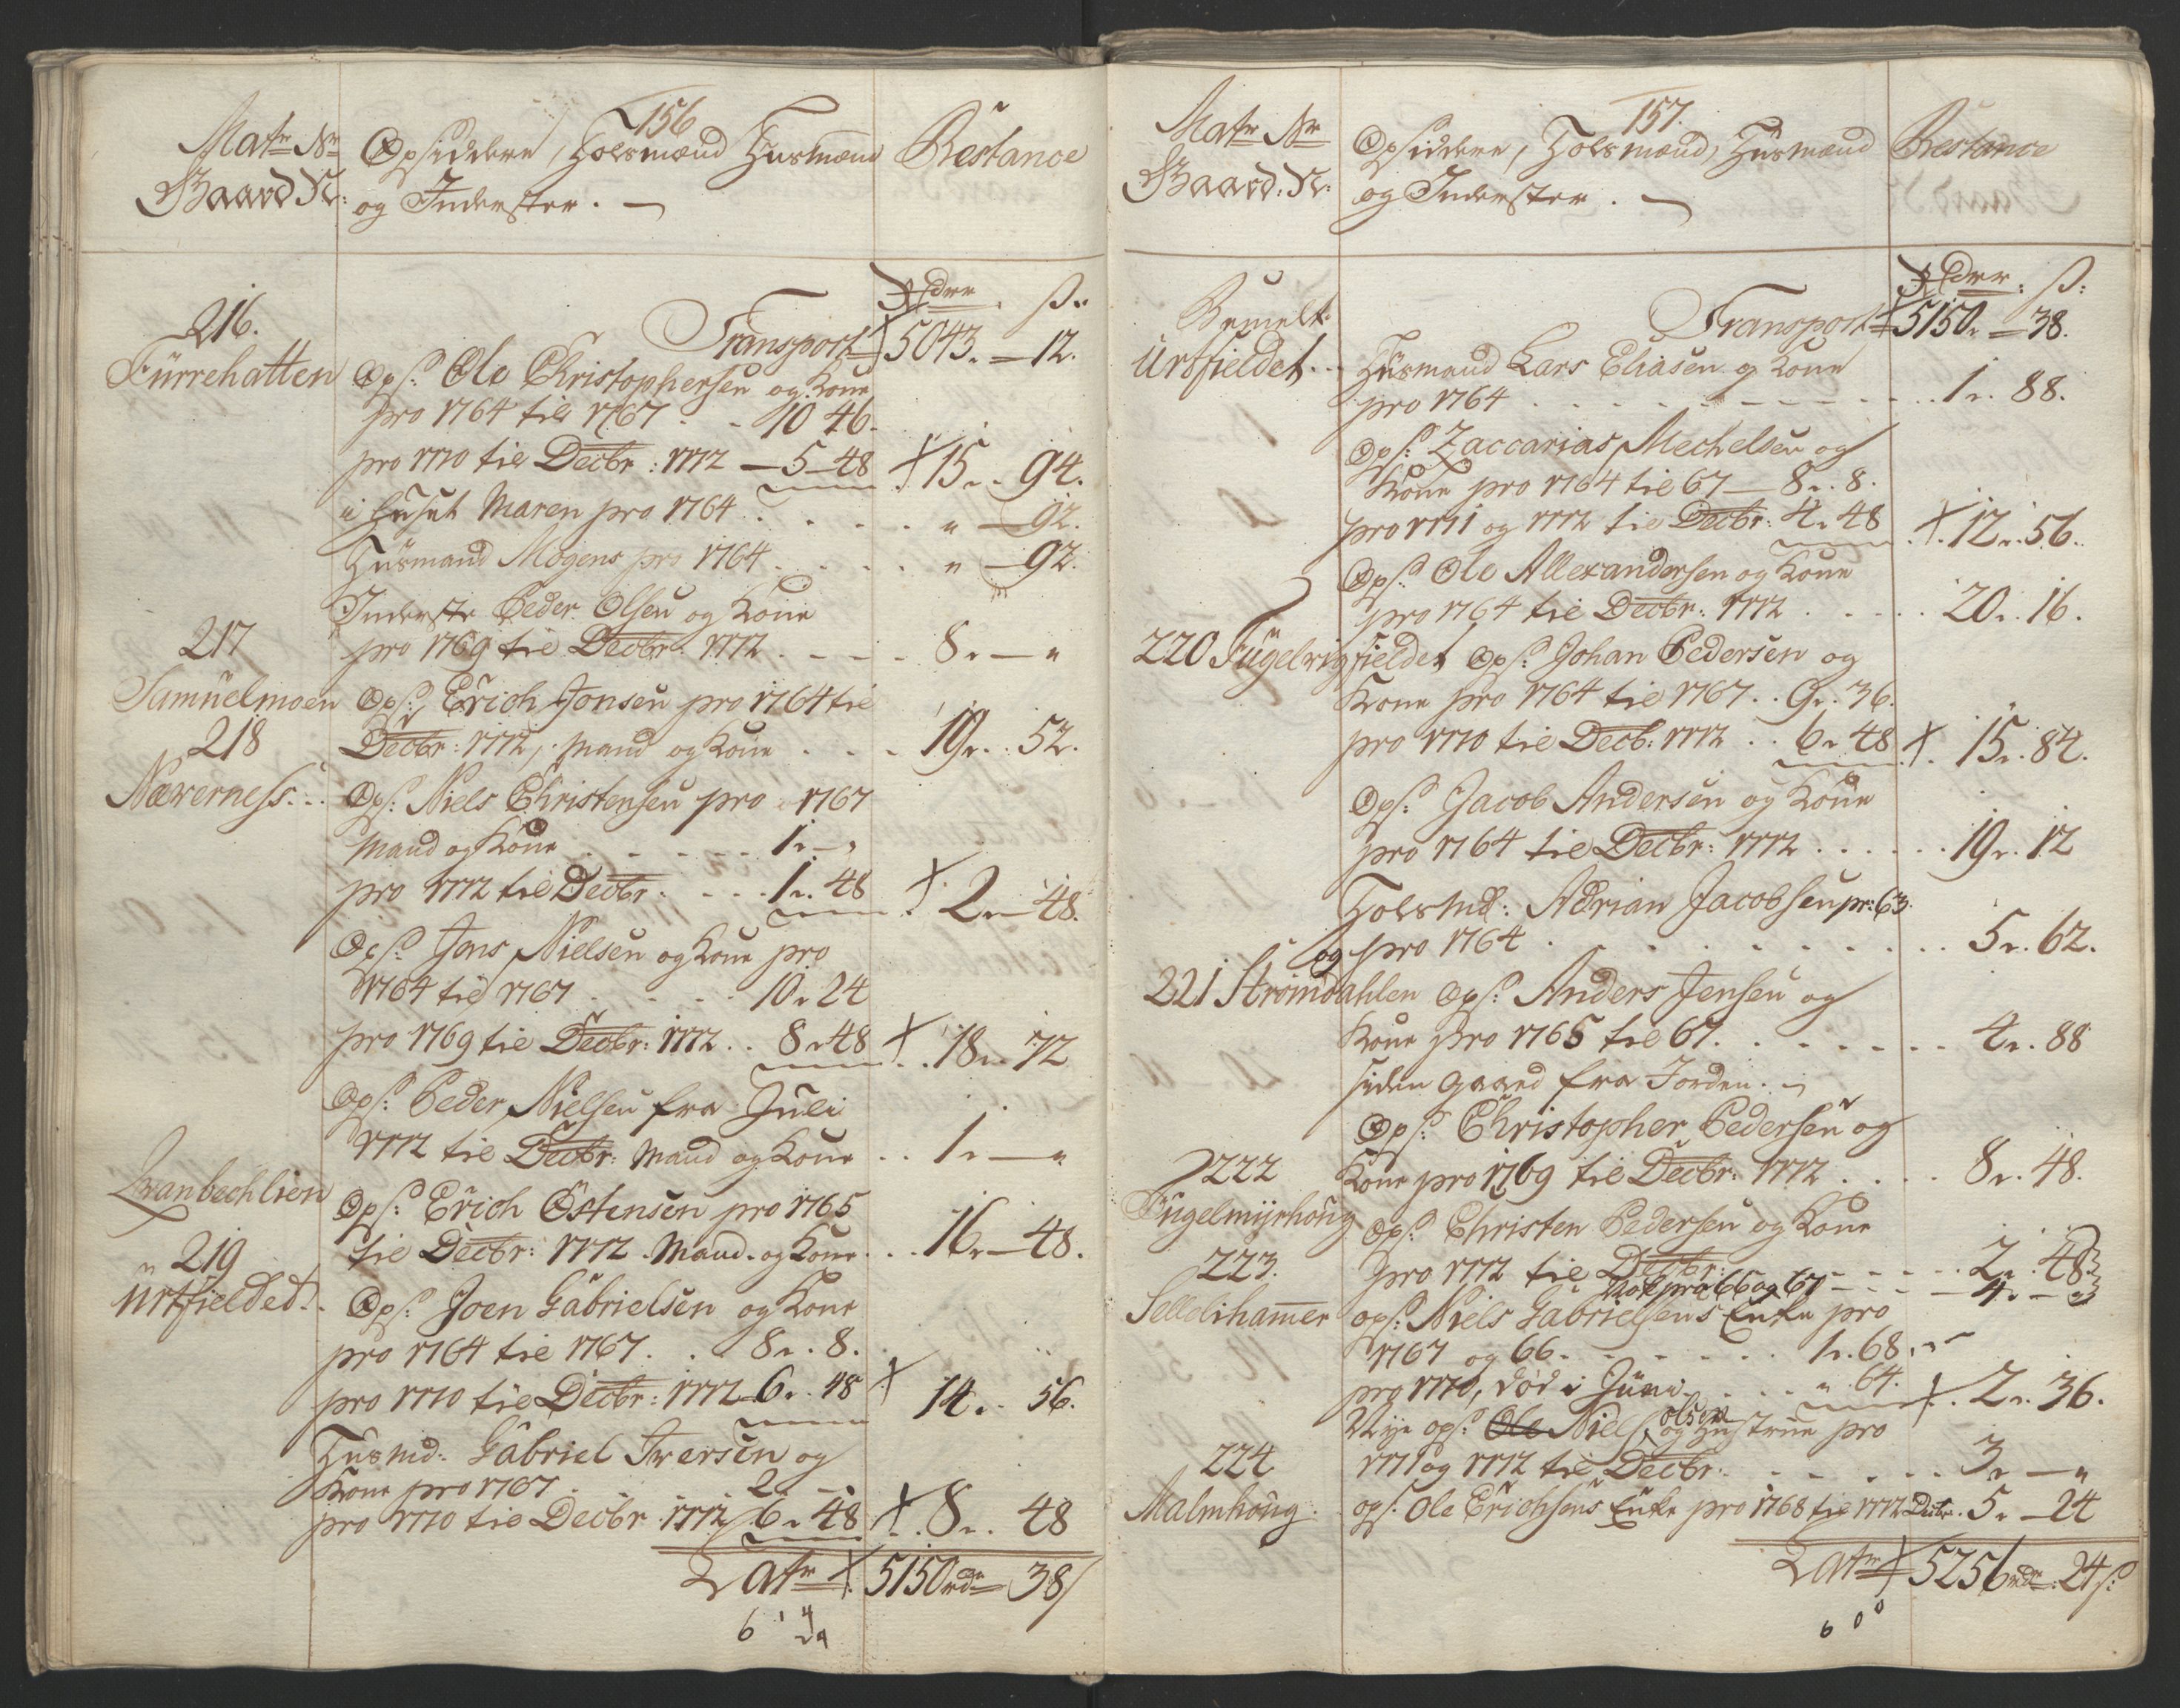 156
Matr Nr
Gaard N:
Opsiddere, Folsmænd Husmænd
og Inderster.
Restance
Rdlr. ß.
Transport 5043. - 12.
216.
Fürrehatten
Ops: Ole Christophersen og Kone
pro 1764 til 1767 . . 10 46.
pro 1770 til Decbr: 1772 - 5 - 48 15. - 94.
i Huset Maren pro 1764 . . . . . " - 92.
Huusmand Mogens pro 1764 . . . . " - 92.
Inderste Peder Olsen og Kone
pro 1769 til Decbr 1772 . - - - 8. - "
217
Samuelmoen
Ops: Erich Jonsen pro 1764 til
Decbr: 1772, Mand og Kone . . . 19. . 52.
218
Næverness. . .
Ops: Niels Christensen pro 1767
Mand og Kone . . . . . . 1. - "
pro 1772 til Decbr. - . . 1. 48 2. - 48.
Ops: Jens Nielsen og Kone pro
1764 til 1767 . . . . . 10. 24
pro 1769 til Decbr: 1772 . . 8. 48 18. - 72
Ops: Peder Nielsen fra Juli
1772 til Decbr: Mand og Kone . . 1. - "
Svanbechlien
Ops: Erich Östensen pro 1765
til Decbr: 1772. Mand og Kone . . 16. - 48.
219
Urtfieldet. .
Ops: Joen Gabrielsen og Kone
pro 1764 til 1767. . . 8. . 8.
pro 1770 til Decbr: 1772 6. . 48 14. . 56.
Husmd: Gabriel Iversen og
Kone pro 1767 . . . . 2. - "
pro 1770 til Decbr 1772 6. 48 8. . 48
Latr 5150 rdr 38 ß
6 1 4
157.
Matr Nr
Gaard: N:
Opsiddere, Folsmænd, Husmænd
og Inderster.
Restance
Rdlr: ß:
Transport 5150. - 38.
Bemelte
Urtfieldet. .
Huusmand Lars Eliasen og Kone
pro 1764 . . . . . . . . . . 1. . 88.
Ops: Zaccarias Mechelsen og
Kone pro 1764 til 67 - 8. . 8.
pro 1771 og 1772 til Decbr: 4. 48 12. . 56.
Ops: Ole Allexandersen og Kone
pro 1764 til Decbr: 1772 . . . . 20. . 16.
220 Fugelvigfieldet Ops: Johan Pedersen og
Kone pro 1764 til 1767 . . 9. . 36.
pro 1770 til Decb: 1772 . . 6. 48 15. . 84.
Ops: Jacob Andersen og Kone
pro 1764 til Decbr: 1772 . . . . . . 19. . 12
Folsmd: Adrian Jacobsen pr: 63
og pro 1764 . . . . . . . . . . 5. . 62.
221 Strømdahlen Ops: Anders Jensen og
Kone pro 1765 til 67. . . . . . . . 4. . 88
siden gaaed fra Jorden.
Ops: Christopher Pedersen og
Kone pro 1769 til Decbr: 1772 . . . . 8. . 48.
222
Fugelmyrhoug
Ops: Christen Pedersen og Kone
pro 1772 til Decbr: - - - - - - 2. . 48
pro 66 og 67 - - - - 4. - "
223.
Sellelihamer
ops: Niels Gabrielsens Enke pro
1767 og 66. - - - - - - 1. . 68.
pro 1770, død i Juni. . . . " . 64. 2. . 36.
Nye ops: Ole Niels olsen og Hustrue pro
1771 og 1772 til Decbr. . . . . . . 3. - "
224
Malmhoug.
ops. Ole Erichsens Enke pro 1768 til 1772 Decbr. 5. - 24
Latr 5256 rdr: 24 ß:
6 0 0